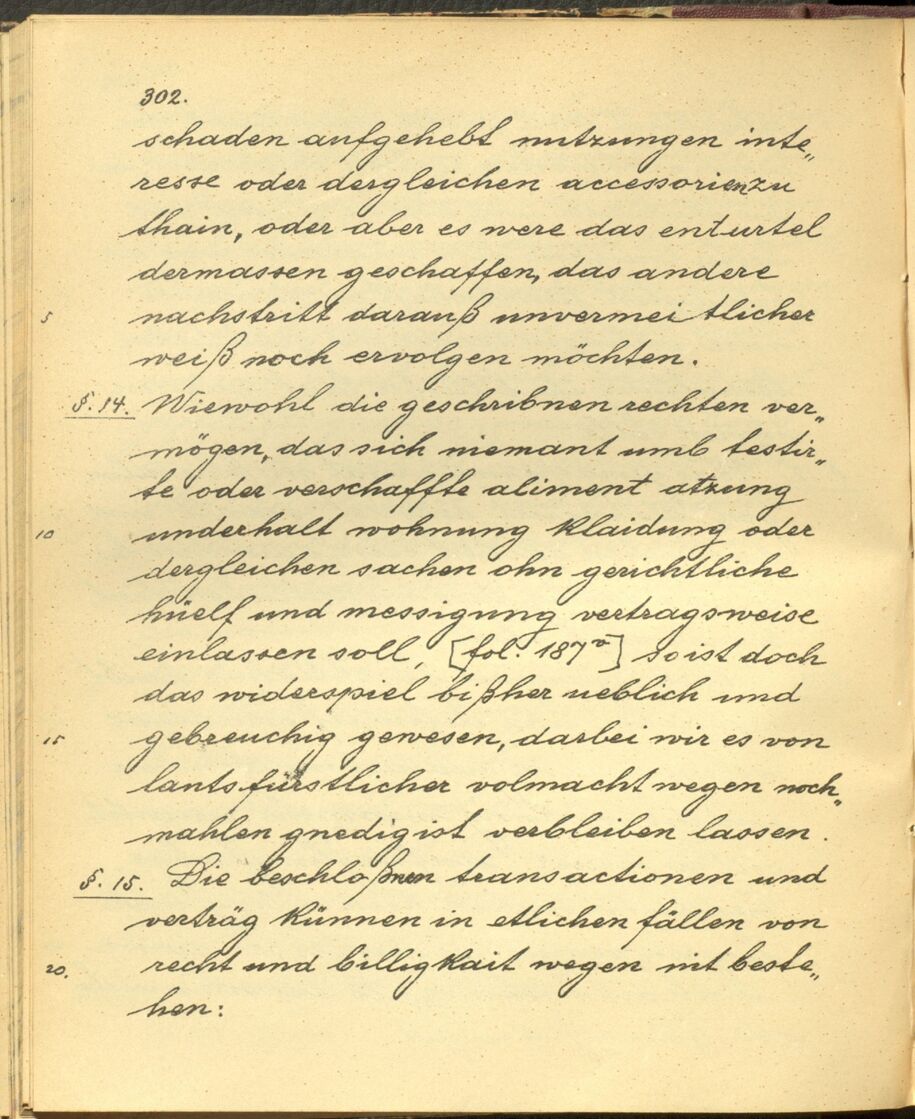 302.
schaden aufgehebt nutzungen inte„
resse oder dergleichen accessorien zu
thain, oder aber es were das enturtel
dermassen geschaffen, das andere
5 nachstritt darauß unvermeitlicher
weiß noch ervolgen möchten.
§. 14. Wiewohl die geschribnen rechten ver„
mögen, das sich niemant umb testir„
te oder verschaffte aliment atzung
10 underhalt wohnung klaidung oder
dergleichen sachen ohn gerichtliche
hüelf und messigung vertragsweise
einlassen soll, [fol. 187v] so ist doch
das widerspiel bißher ueblich und
15 gebreuchig gewesen, darbei wir es von
lantsfürstlicher volmacht wegen noch„
mahlen gnedigist verbleiben lassen.
§. 15. Die beschloßnen transactionen und
verträg künnen in etlichen fällen von
20. recht und billigkait wegen nit beste„
hen: